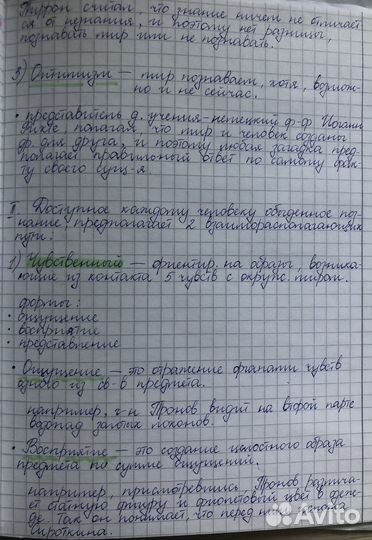 Пиррон считал, что знание ничем не отличает-
ся от незнания, и поэтому нет разницы,
познавать мир или не познавать.
3) Оптимизм — мир познаваем, хотя, возмож-
но и не сейчас.
• представитель д. учения - немецкий ф-ф Иоганн
Фихте полагал, что мир и человек созданы
др. для друга, и поэтому любая загадка пред-
полагает правильный ответ по самому фак-
ту своего сущ-я.
II. Доступное каждому человеку обыденное поз-
нание предполагает 2 взаиморасполагающих
пути:
1) Чувственный — ориентир. на образы, возника-
ющие из контакта 5 чувств с окруж. миром.
формы:
• ощущение
• восприятие
• представление
• Ощущение — это отражение органами чувств
одного из св-в предмета.
например, г-н Пронов видит на второй парте
водопад золотых локонов.
• Восприятие — это создание целостного образа
предмета по сумме ощущений.
например, присмотревшись, Пронов различа-
ет статную фигуру и фиолетовый цвет в одеж-
де. Так он понимает, что перед ним
Сироткина.
Avito